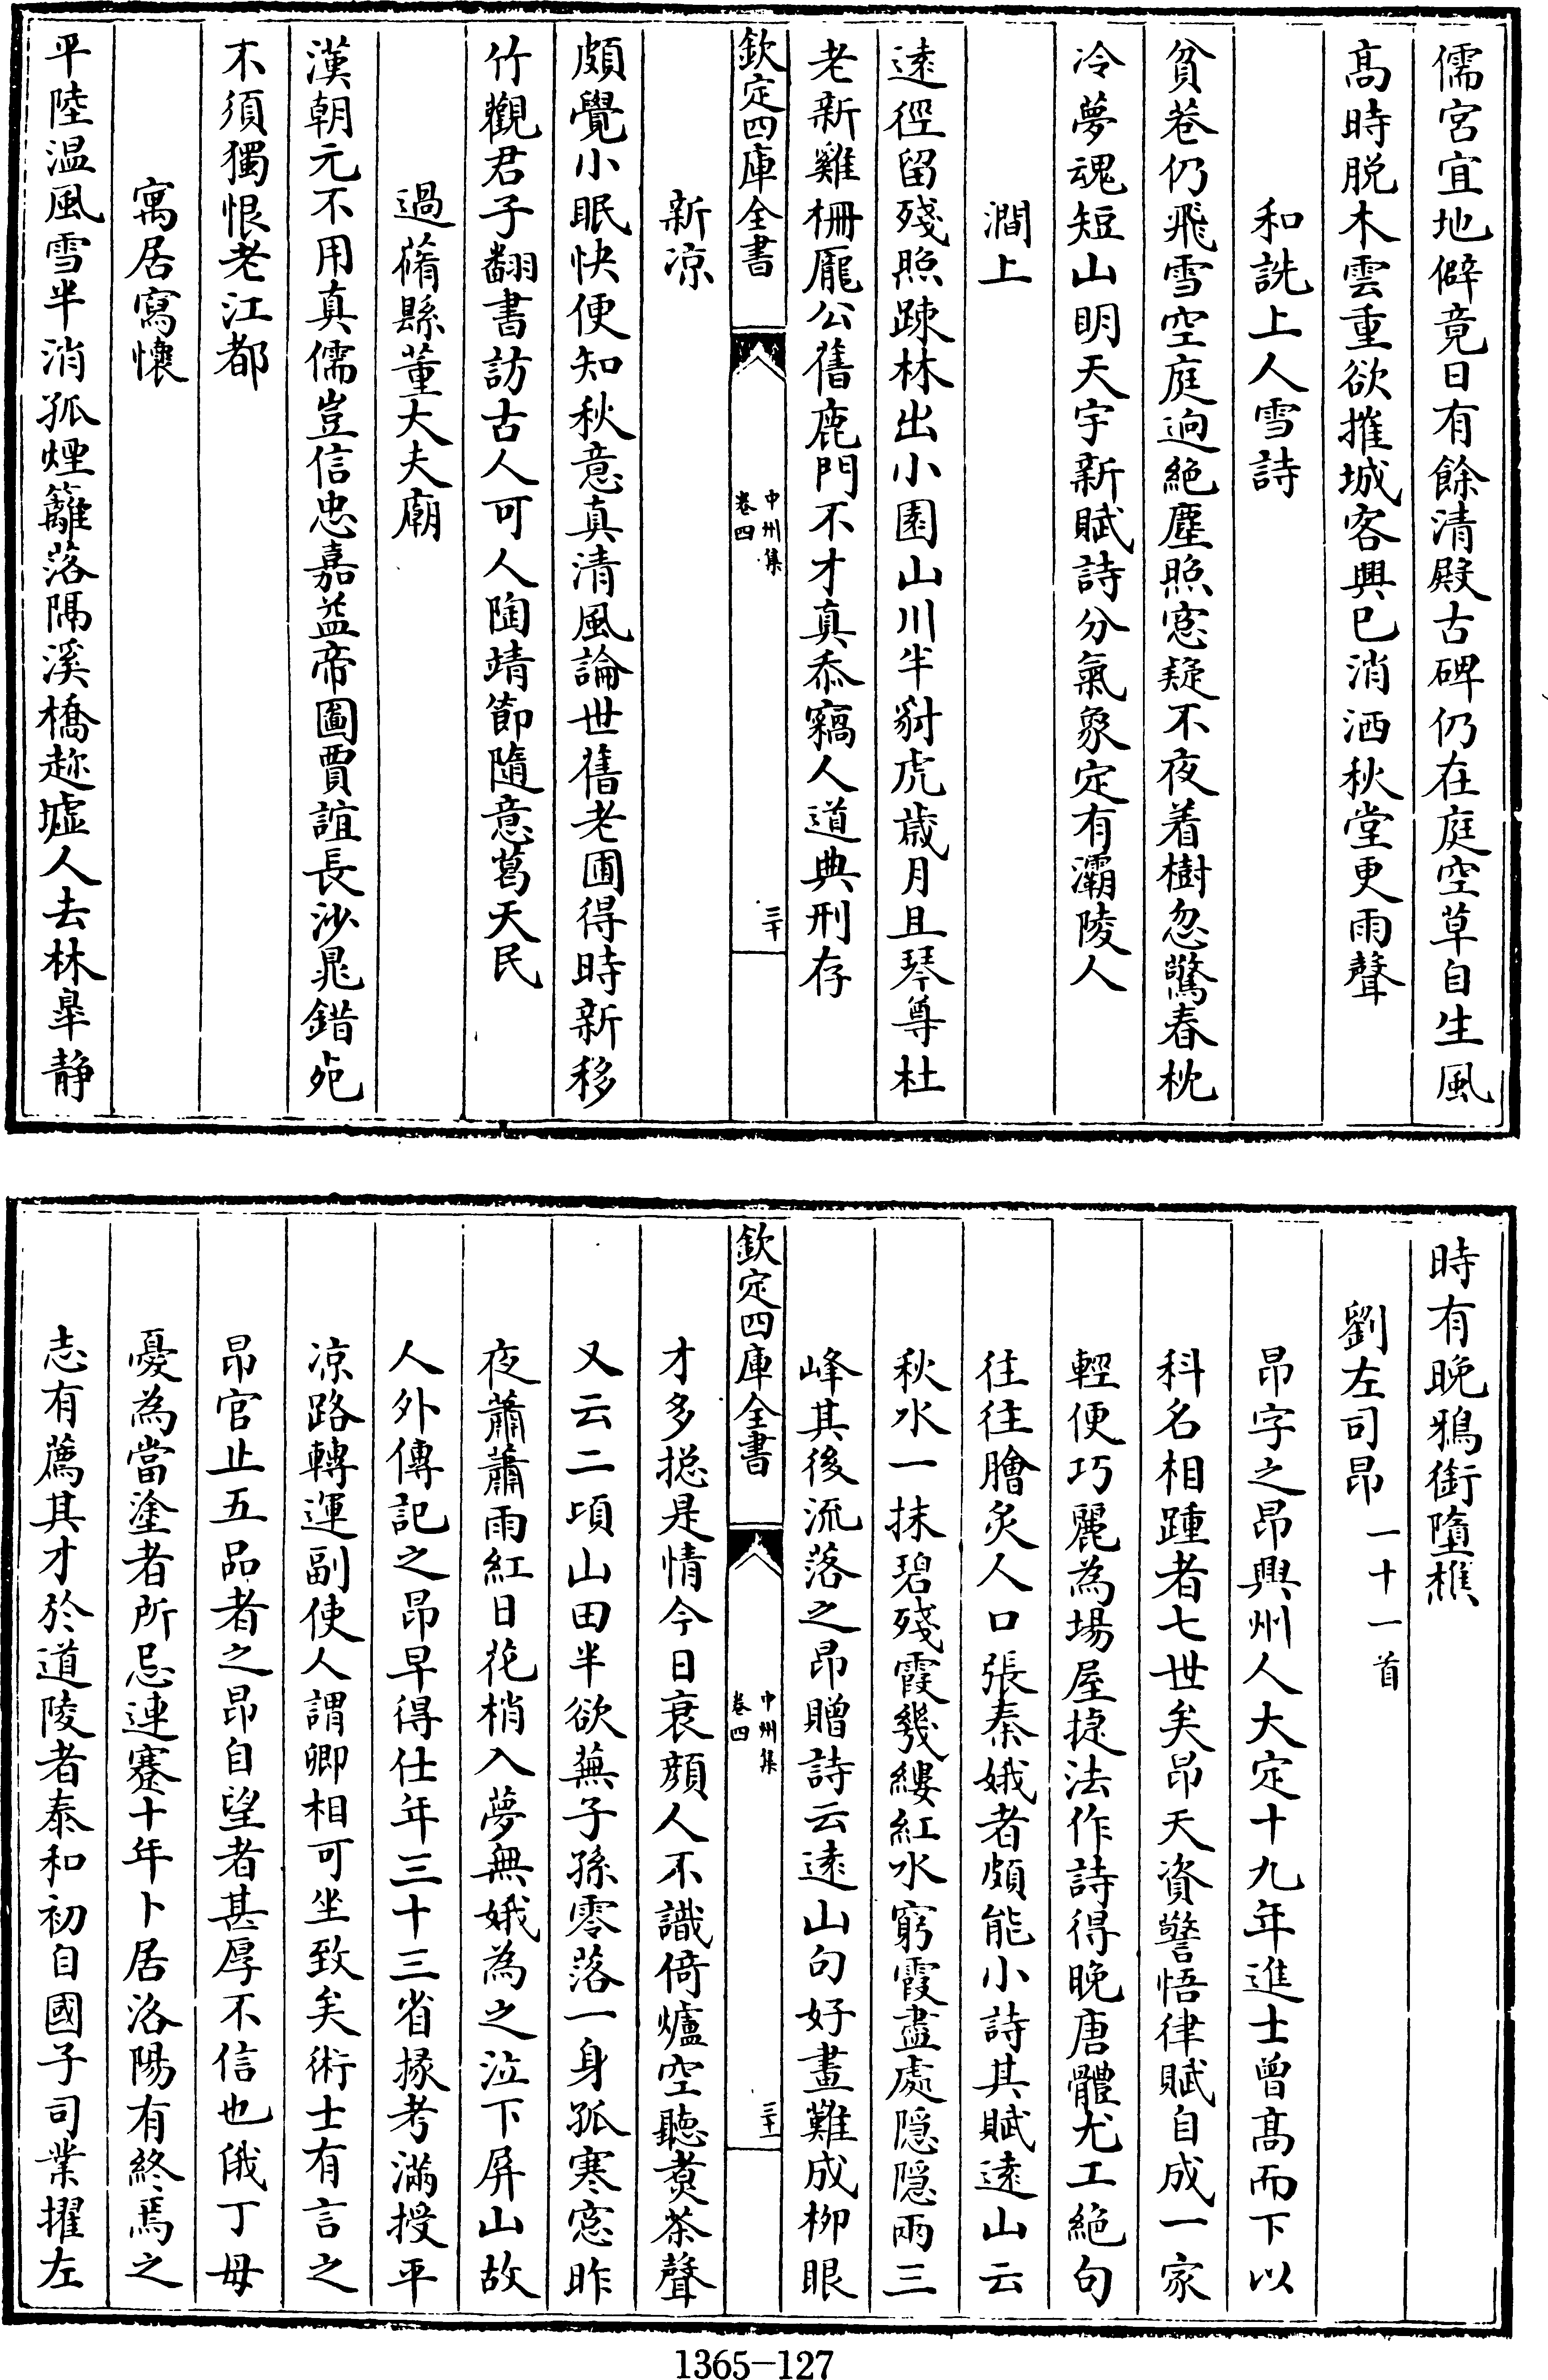 儒宮宜地僻竟日有餘清殿古碑仍在庭空草自生風
髙時脱木雲重欲摧城客興已消洒秋堂更雨聲
和詵上人雪詩
貧巷仍飛雪空庭逈絶塵照窓疑不夜着樹忽驚春枕
冷夢魂短山明天宇新賦詩分氣象定有灞陵人
澗上
逺徑留殘照踈林出小園山川半豺虎歳月且琴尊杜
老新雞柵龎公舊鹿門不才真忝竊人道典刑存
欽定四庫全書
中州集
卷四
三十
新凉
頗覺小眠快便知秋意真清風論世舊老圃得時新移
竹觀君子翻書訪古人可人陶靖節隨意葛天民
過蓨縣董大夫廟
漢朝元不用真儒豈信忠嘉益帝圖賈誼長沙晁錯死
不須獨恨老江都
寓居寫懷
平陸温風雪半消孤煙籬落隔溪橋趂墟人去林臯静
時有晚鴉銜墮樵
劉左司昂 一十一首
昂字之昂興州人大定十九年進士曾髙而下以
科名相踵者七世矣昂天資警悟律賦自成一家
輕便巧麗為場屋捷法作詩得晚唐體尤工絶句
往往膾炙人口張秦娥者頗能小詩其賦逺山云
秋水一抹碧殘霞幾縷紅水窮霞盡處隠隠兩三
峰其後流落之昂贈詩云逺山句好畫難成柳眼
欽定四庫全書
中州集
卷四
三十一
才多捴是情今日衰顔人不識倚爐空聽煑茶聲
又云二頃山田半欲蕪子孫零落一身孤寒窓昨
夜蕭蕭雨紅日花梢入夢無娥為之泣下屏山故
人外傳記之昂早得仕年三十三省掾考滿授平
凉路轉運副使人謂卿相可坐致矣術士有言之
昂官止五品者之昂自望者甚厚不信也俄丁母
憂為當塗者所忌連蹇十年卜居洛陽有終焉之
志有薦其才於道陵者泰和初自國子司業擢左
1365-127